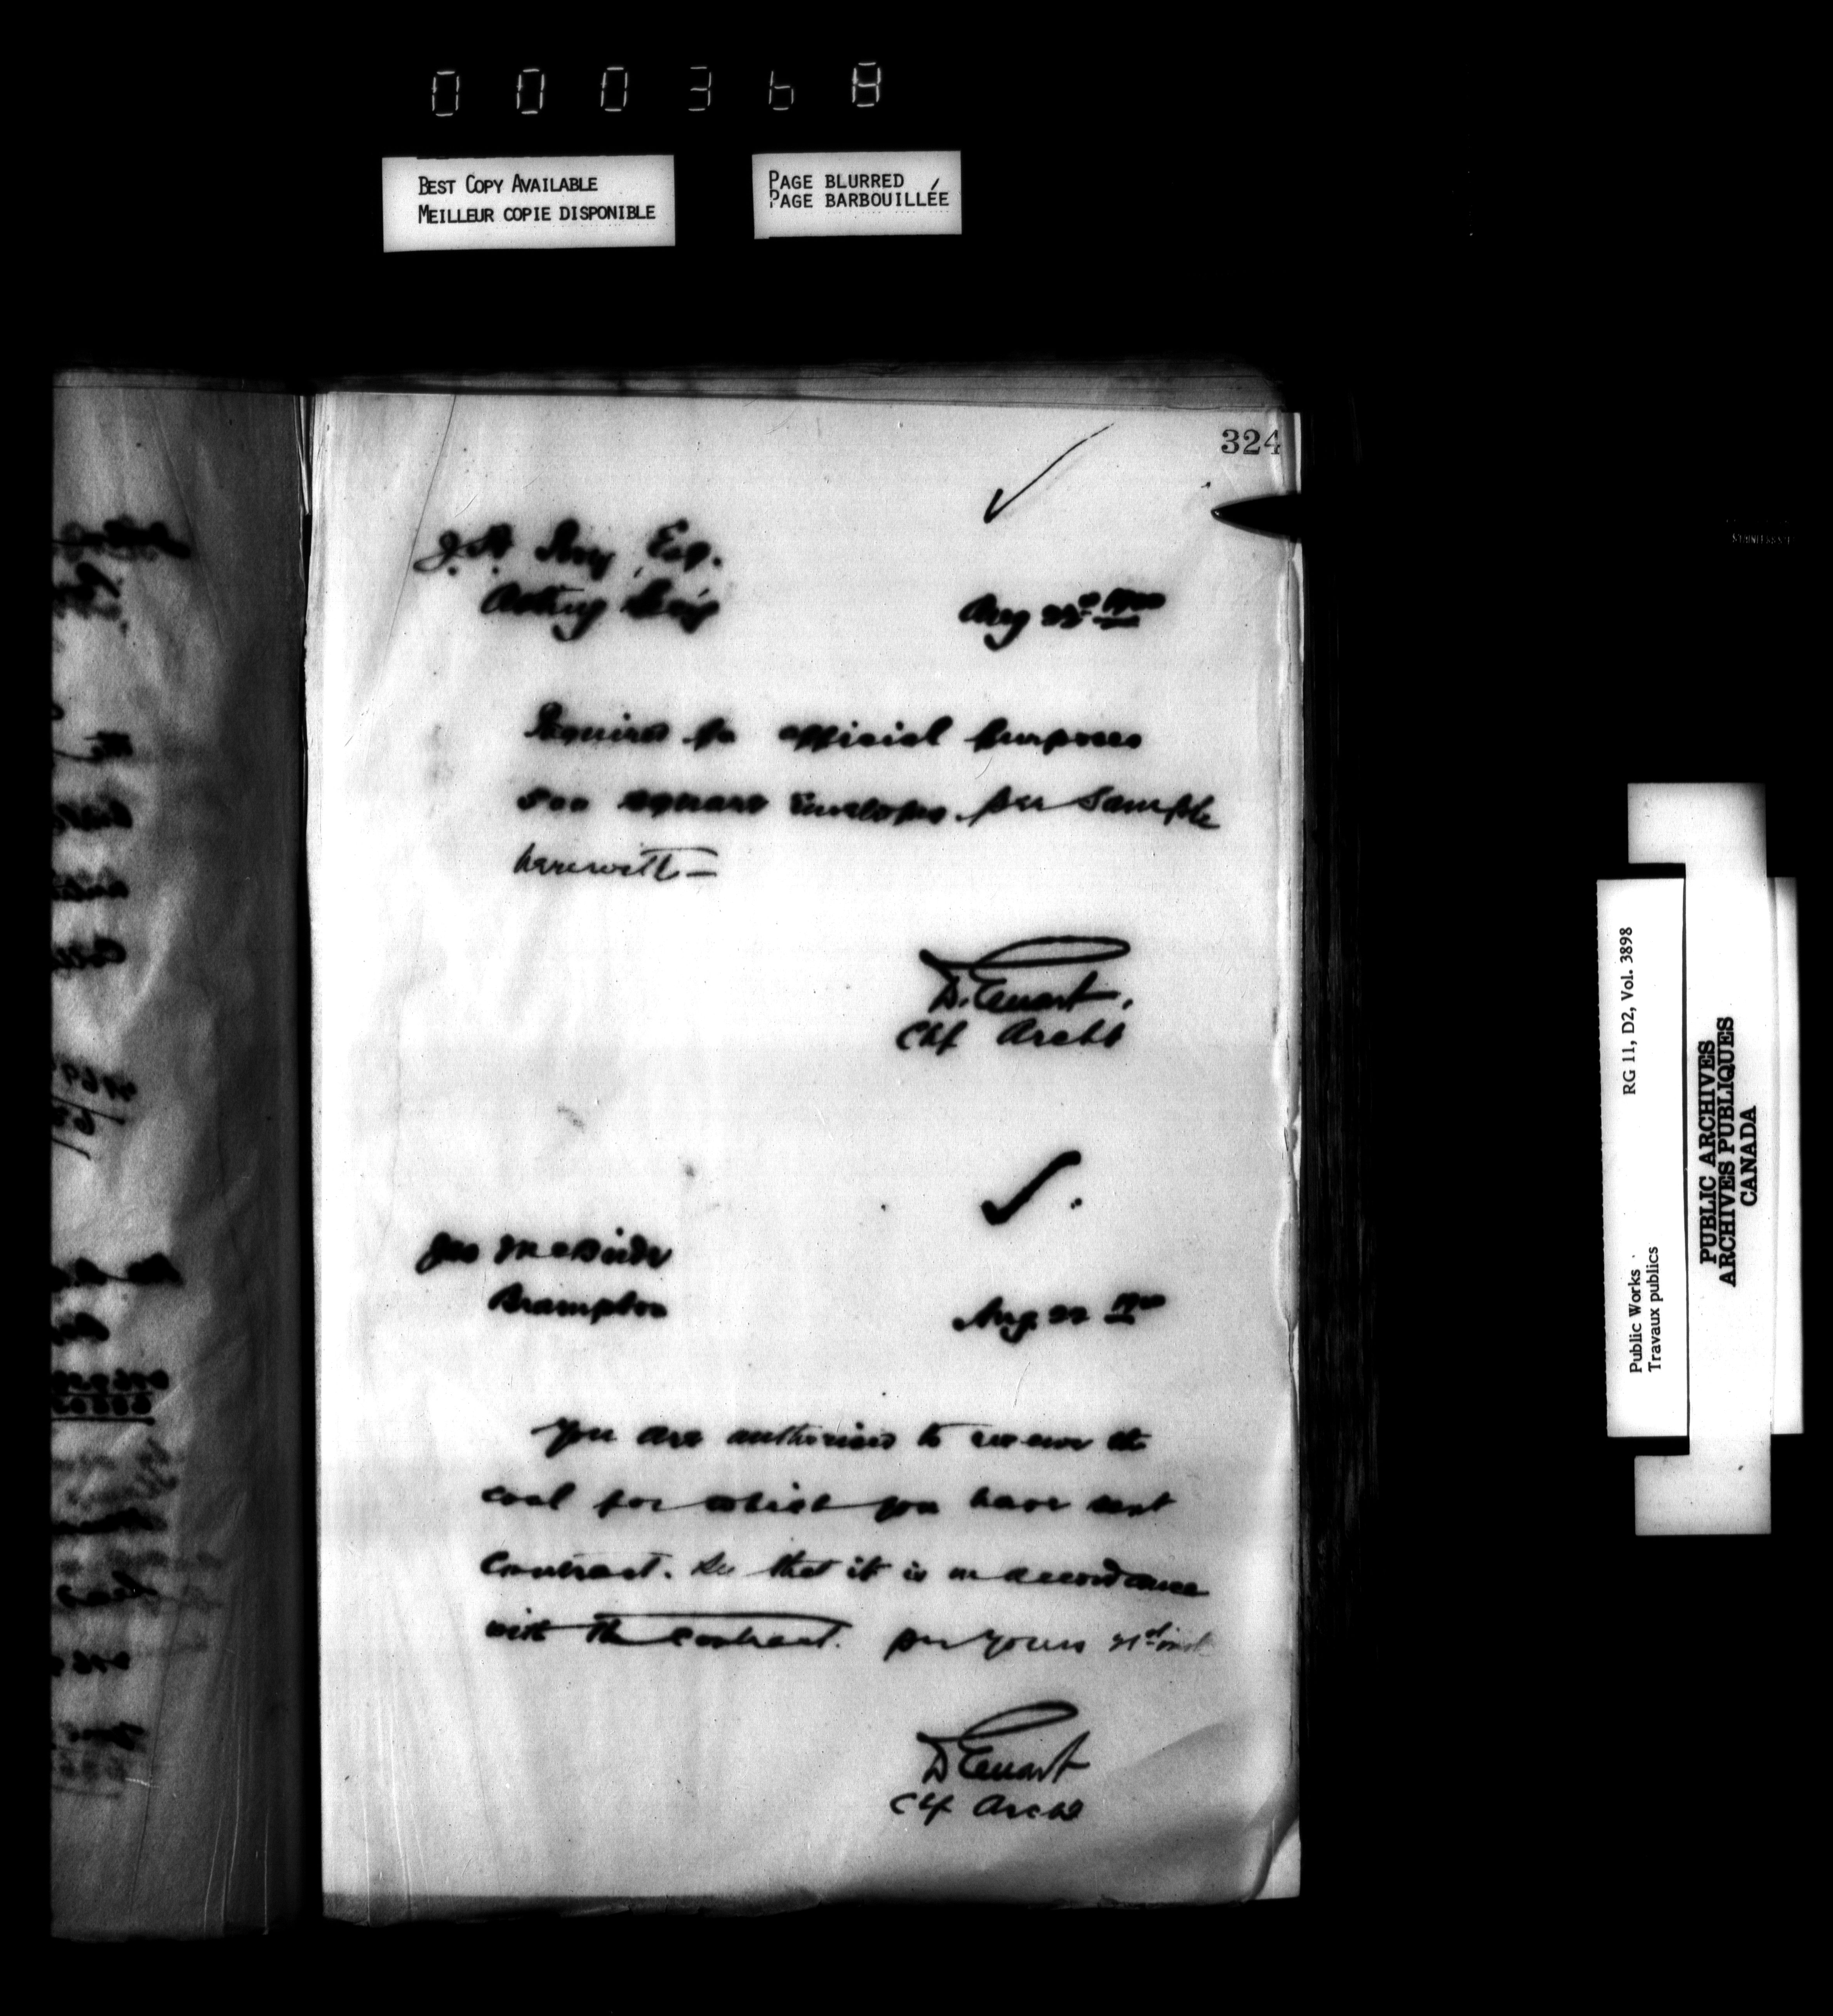 000368
BEST COPY AVAILABLE
MEILLEUR COPIE DISPONIBLE
PAGE BLURRED
PAGE BARBOUILLÉE
324
Roy Esq.
Acting
Aug 22d 1900
Required for official purposes
500 square Envelopes per Sample
herewith—
D. Ewart.
Chf Archt
Jno McBride
Brampton
Aug. 22 1900
You are authorised to receive the
coal for which you have sent
Contract. See that it is in accordance
with the contract. per yours 21st inst
D Ewart
Chf Archt
RG 11, D2, Vol. 3898
Public Works
Travaux publics
PUBLIC ARCHIVES
ARCHIVES PUBLIQUES
CANADA